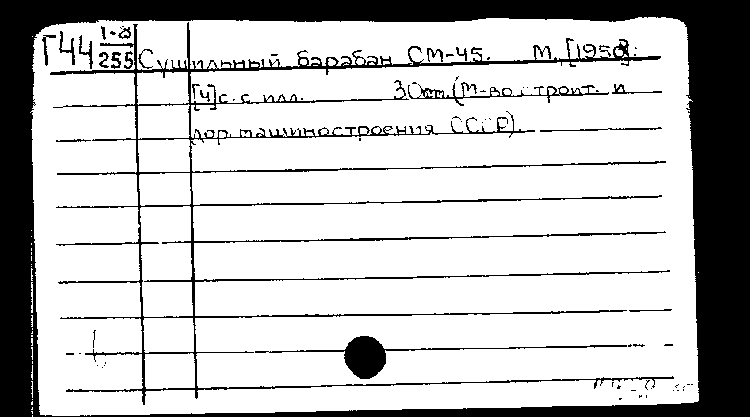 Г44 1-8/255 Сушильный барабан СМ-45. М., [1950].
[4] с. с илл. 30 см. (М-во строит. и
дор. машиностроения СССР).